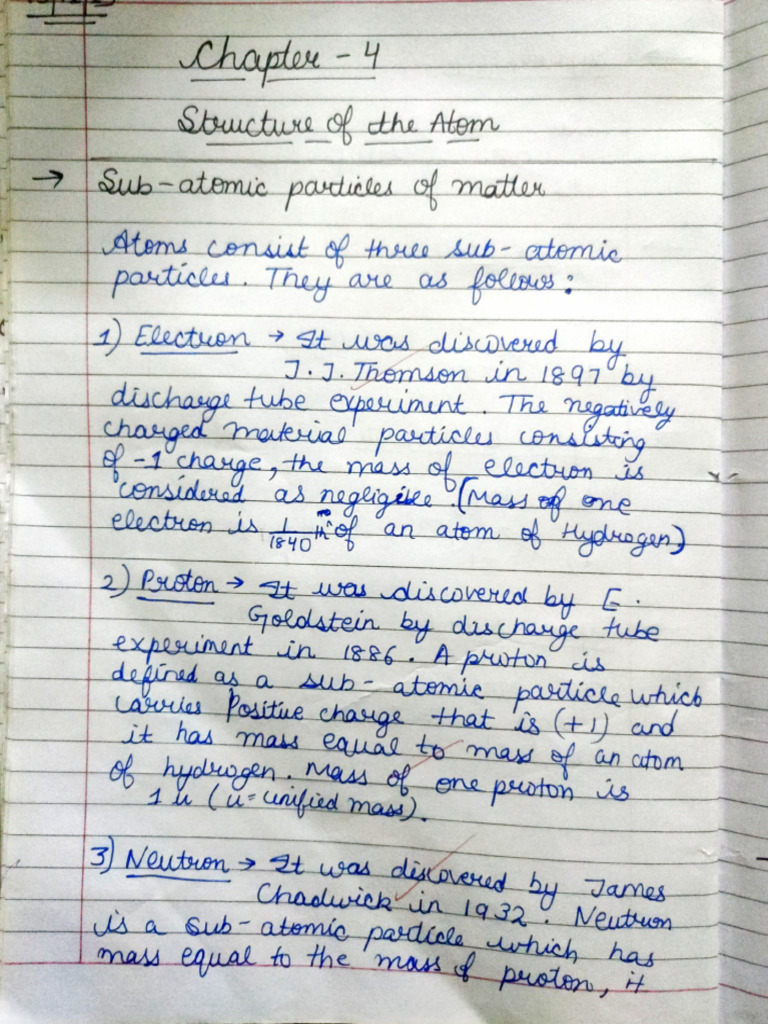 Chapter - 4
Structure of the Atom
→ Sub-atomic particles of matter
Atoms consist of three sub-atomic
particles. They are as follows:
1) Electron → It was discovered by
J.J. Thomson in 1897 by
discharge tube experiment. The negatively
charged material particles consisting
of -1 charge, the mass of electron is
considered as negligible. (Mass of one
electron is 1/1840 th of an atom of Hydrogen)
2) Proton → It was discovered by E.
Goldstein by discharge tube
experiment in 1886. A proton is
defined as a sub-atomic particle which
carries Positive charge that is (+1) and
it has mass equal to mass of an atom
of hydrogen. Mass of one proton is
1 u (u = unified mass).
3) Neutron → It was discovered by James
Chadwick in 1932. Neutron
is a sub-atomic particle which has
mass equal to the mass of proton, it